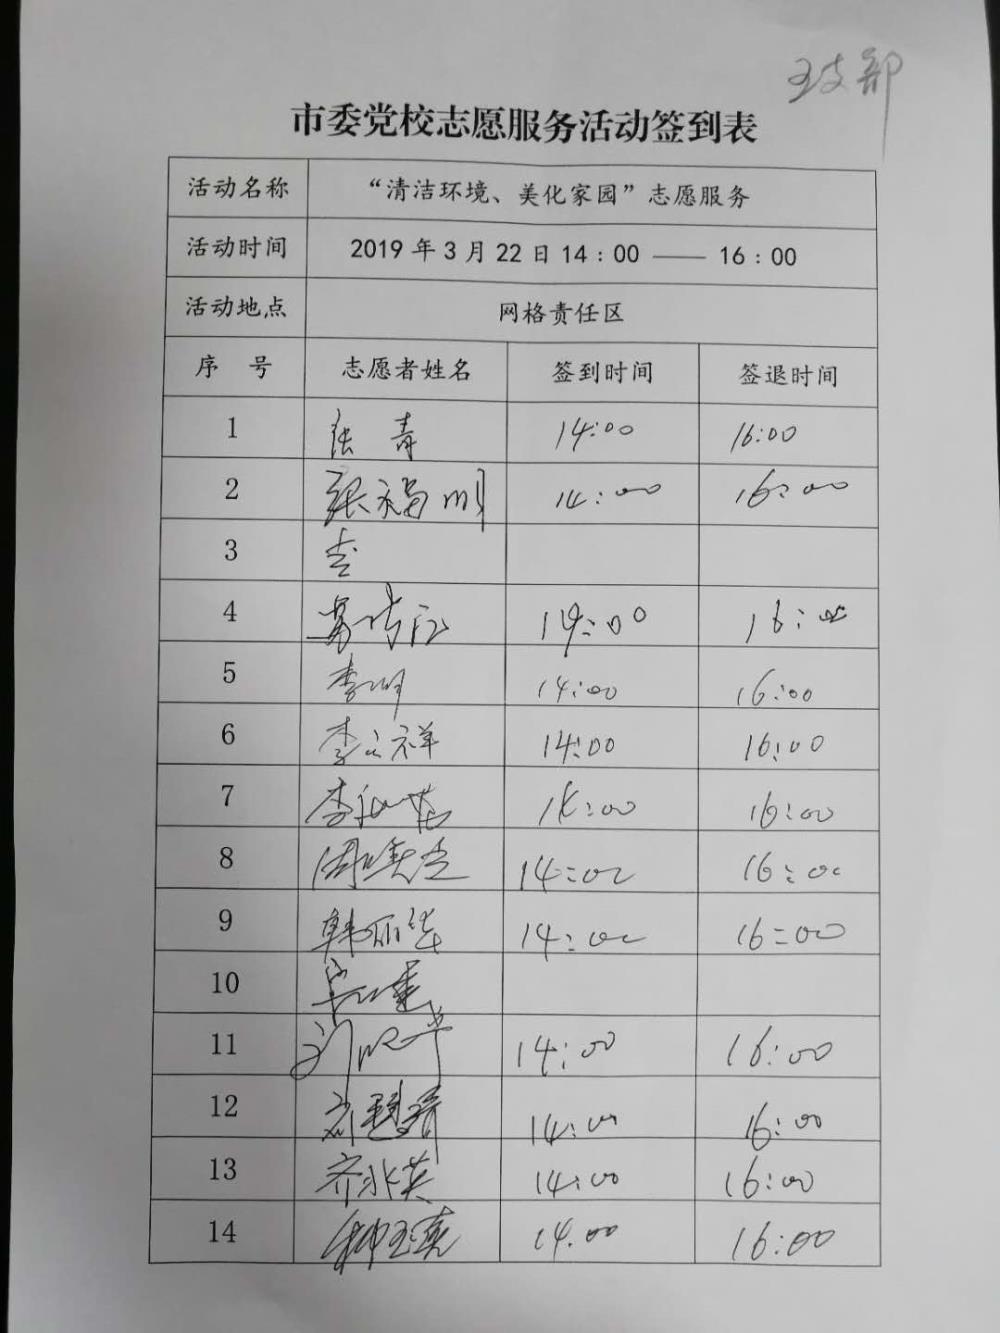 支部
市委党校志愿服务活动签到表
活动名称 “清洁环境、美化家园”志愿服务
活动时间 2019年3月22日14：00 —— 16：00
活动地点 网格责任区
序 号 志愿者姓名 签到时间 签退时间
1 张青 14:00 16:00
2 张福明 14:00 16:00
3
4 14:00 16:00
5 李明 14:00 16:00
6 李文祥 14:00 16:00
7 李 14:00 16:00
8 周 14:00 16:00
9 韩丽华 14:00 16:00
10
11 刘 14:00 16:00
12 刘慧琦 14:00 16:00
13 齐永英 14:00 16:00
14 柳玉英 14.00 16:00